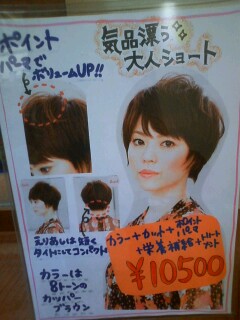 ポイント
パーマで
ボリュームUP!!
気品漂う
大人ショート
えりあしは短く
タイトにしてコンパクト
カラーは
8トーンの
カッパー
ブラウン
カラー+カット+ポイントパーマ
+栄養補給+トリートメント
¥10500